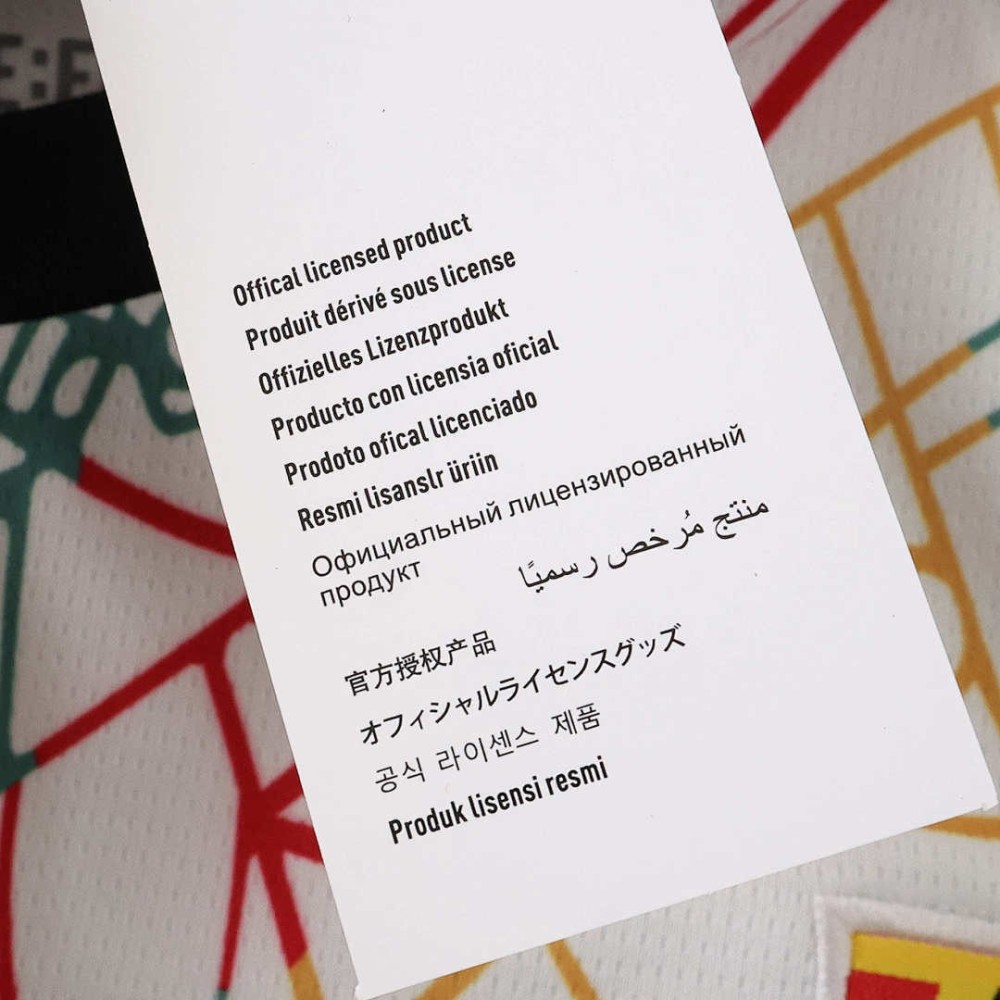 E:E
Offical licensed product
Produit dérivé sous license
Offizielles Lizenzprodukt
Producto con licensia oficial
Prodoto ofical licenciado
Resmi lisanslr üriin
Официальный лицензированный
продукт
منتج مُرخص رسميًا
官方授权产品
オフィシャルライセンスグッズ
공식 라이센스 제품
Produk lisensi resmi